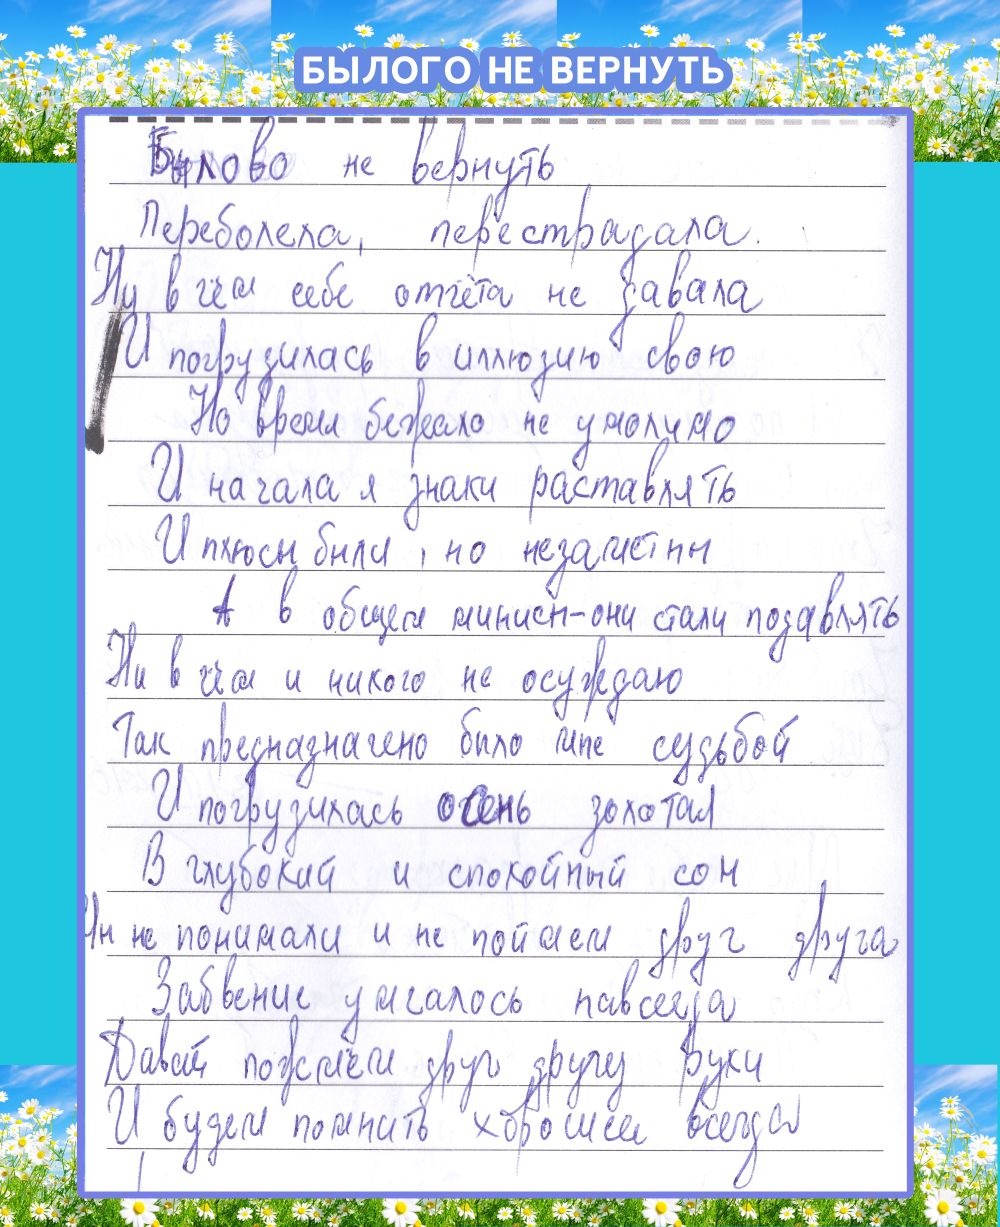 БЫЛОГО НЕ ВЕРНУТЬ
Былово не вернуть
Переболела, перестрадала.
Ну в чём себе отчёта не давала
И погрузилась в иллюзию свою
Но время бежало не умолимо
И начала я знаки раставлять
И плюсы были, но незаметны
А в общем минисы-они стали подавлять
Ни в чём и никого не осуждаю
Так предназначено было мне судьбой
И погрузилась осень золотая
В глубокий и спокойный сон
Мы не понимали и не поймём друг друга
Забвение умчалось навсегда
Давай пожмём друг другу руки
И будем помнить хорошее всегда